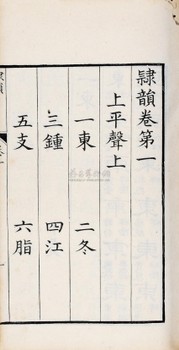 隸韻卷第一
上平聲上
一東 二冬
三鍾 四江
五支 六脂